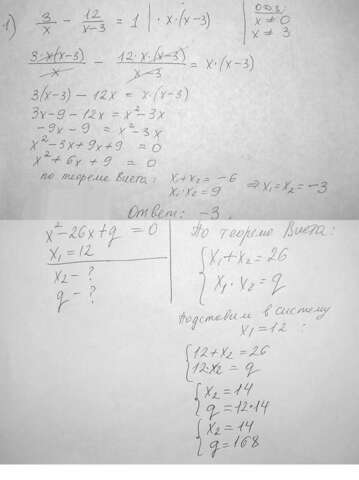 1) 3/x − 12/(x−3) = 1 | · x · (x−3)
ОДЗ:
x ≠ 0
x ≠ 3
3·x(x−3)/x − 12·x·(x−3)/(x−3) = x·(x−3)
3(x−3) − 12x = x·(x−3)
3x − 9 − 12x = x² − 3x
−9x − 9 = x² − 3x
x² − 3x + 9x + 9 = 0
x² + 6x + 9 = 0
по теореме Виета: x₁ + x₂ = −6
x₁ · x₂ = 9 ⇒ x₁ = x₂ = −3
Ответ: −3.
x² − 26x + q = 0
x₁ = 12
x₂ − ?
q − ?
По теореме Виета:
{ x₁ + x₂ = 26
x₁ · x₂ = q
Подставим в систему
x₁ = 12 :
{ 12 + x₂ = 26
12·x₂ = q
{ x₂ = 14
q = 12·14
{ x₂ = 14
q = 168